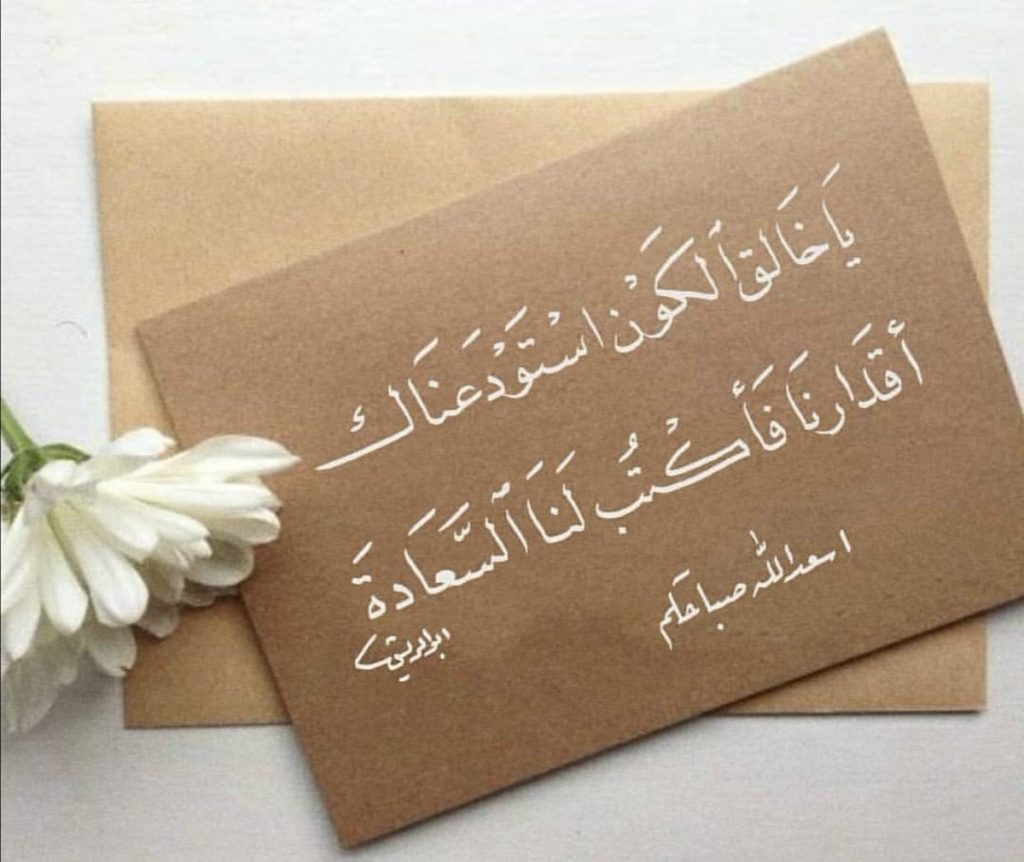 يَا خَالق ٱلكَوْن اسْتَوَدْعَنَاك
أقدَارنَا فَأكْتُب لنَا ٱلسَّعَادةَ
اسعد الله صباحكم